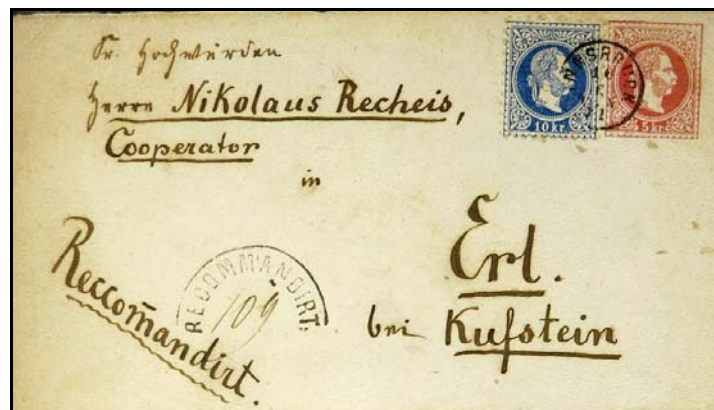 Sr. Hochwürden
Herrn Nikolaus Recheis,
Cooperator
in
Erl.
bei Kufstein
Reccom̄andirt.
RECOMMANDIRT.
109
10 kr.
5 kr.